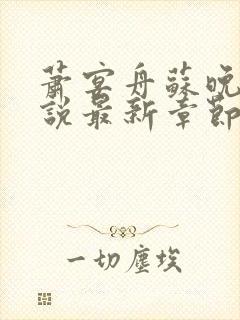 蕭宴舟蘇晚
說最新章節
一切塵埃